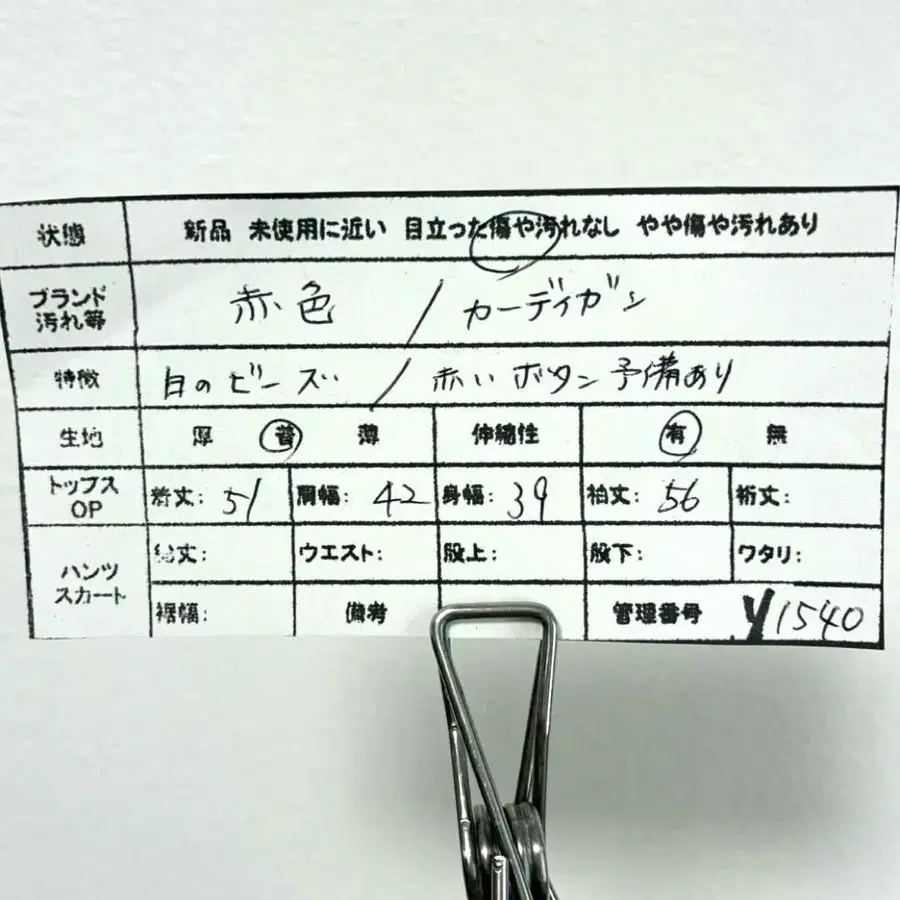 状態 新品 未使用に近い 目立った傷や汚れなし やや傷や汚れあり
ブランド 汚れ等 赤色 / カーディガン
特徴 目のビーズ / 赤いボタン予備あり
生地 厚 普 薄 伸縮性 有 無
トップス OP 着丈: 51 肩幅: 42 身幅: 39 袖丈: 56 裄丈:
パンツ スカート 総丈: ウエスト: 股上: 股下: ワタリ:
裾幅: 備考 管理番号 y1540